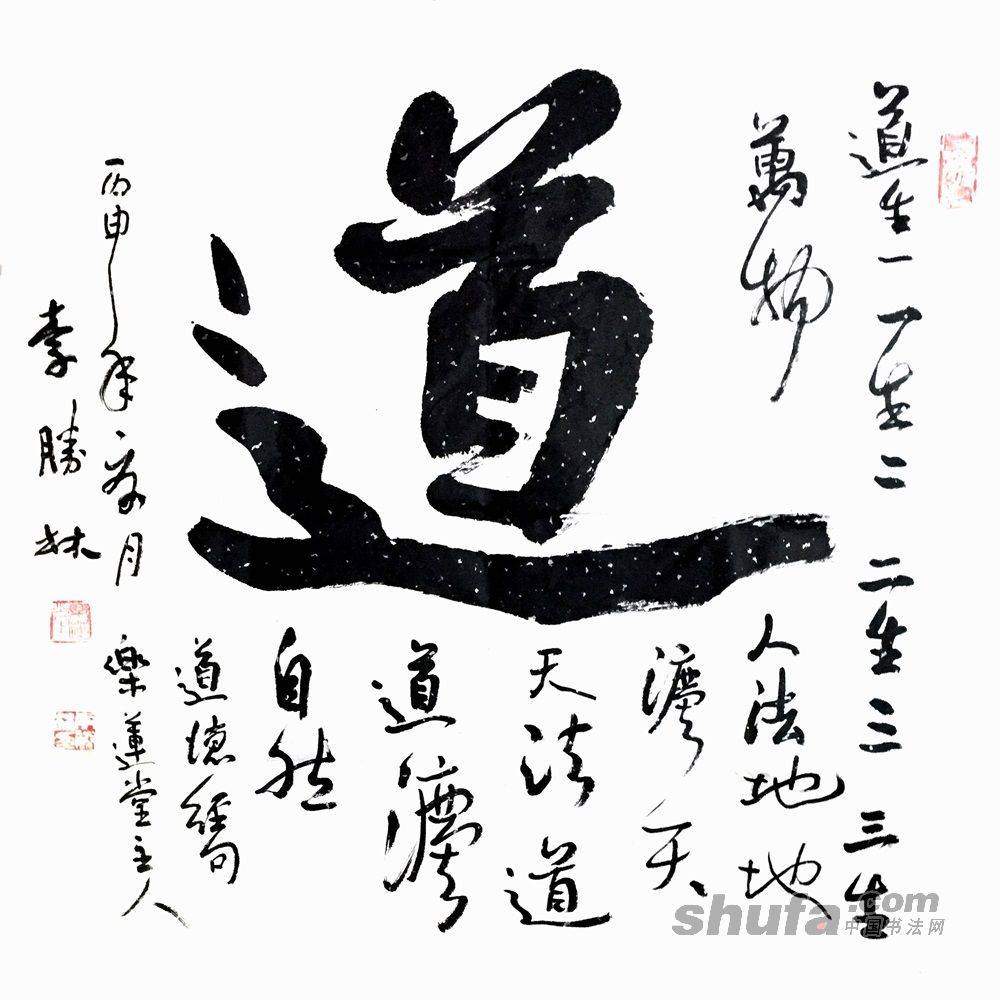 道
道生一一生二二生三三生
萬物
人法地地
灋天
天法道
道灋
自然
道德經句
丙申年 月 樂蓮堂主人
李勝林
shufa.com
中国书法网